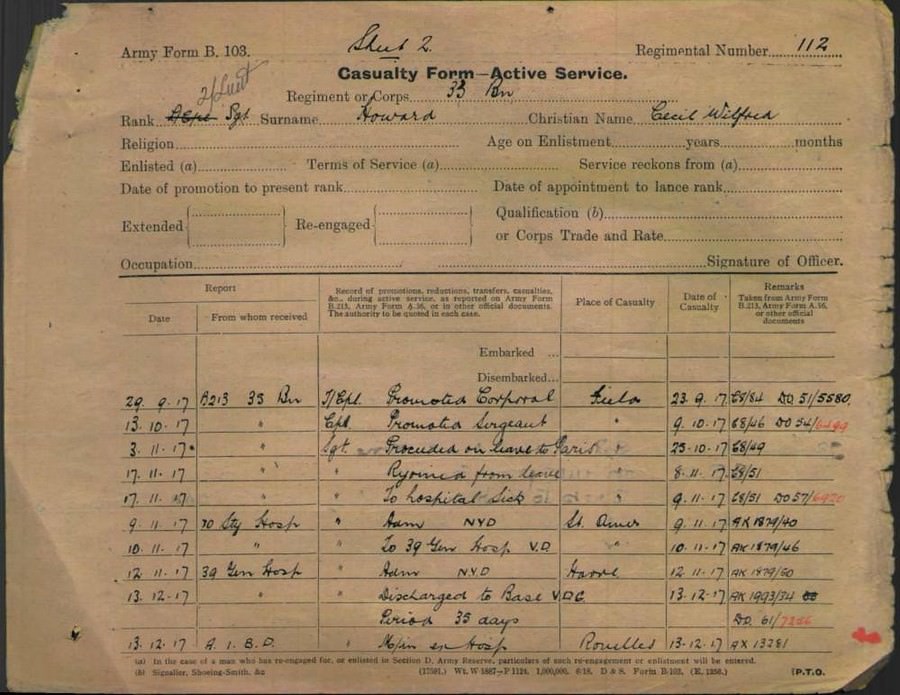 Army Form B. 103. Sheet 2. Regimental Number 112
Casualty Form—Active Service.
2/Lieut
Regiment or Corps 33 Bn
Rank Sgt Surname Howard Christian Name Cecil Wilfred
Religion Age on Enlistment years months
Enlisted (a) Terms of Service (a) Service reckons from (a)
Date of promotion to present rank Date of appointment to lance rank
Extended Re-engaged Qualification (b)
or Corps Trade and Rate
Occupation Signature of Officer.
Report
Date From whom received
Record of promotions, reductions, transfers, casualties, &c., during active service, as reported on Army Form B.213, Army Form A.36, or in other official documents. The authority to be quoted in each case.
Place of Casualty
Date of Casualty
Remarks
Taken from Army Form B.213, Army Form A.36, or other official documents
Embarked ...
Disembarked...
29. 9. 17 B213 33 Bn T/Cpl. Promoted Corporal Field 23. 9. 17 DO 51/5580
13. 10. 17 " Cpl. Promoted Sergeant " 9. 10. 17 68/46 DO 54/
3. 11. 17 " Sgt. Proceeded on leave to Paris 25-10-17 68/49
17. 11. 17 " " Rejoined from leave 8. 11. 17 68/51
17. 11. 17 " " To hospital Sick " 9. 11. 17 68/51 DO 57/6920
9. 11. 17 Sty Hosp " Adm NYD St. Omer 9. 11. 17 AK 1879/40
10. 11. 17 " " To 39 Gen Hosp V.D. " 10. 11. 17 AK 1879/46
12. 11. 17 39 Gen Hosp " Adm NYD Havre 12. 11. 17 AK 1879/50
13. 12. 17 " " Discharged to Base V.D.G. 13. 12. 17 AK 1993/34
Period 35 days DO. 61/
13. 12. 17 A. I. B. D. " M/in ex Hosp Rouelles 13. 12. 17 AX 13281
(a) In the case of a man who has re-engaged for, or enlisted in Section D. Army Reserve, particulars of such re-engagement or enlistment will be entered.
(b) Signaller, Shoeing-Smith, &c (17591.) Wt. W1887—P1124. 1,000,000. 6/18. D & S. Form B.103. (E. 1256.) (P.T.O.